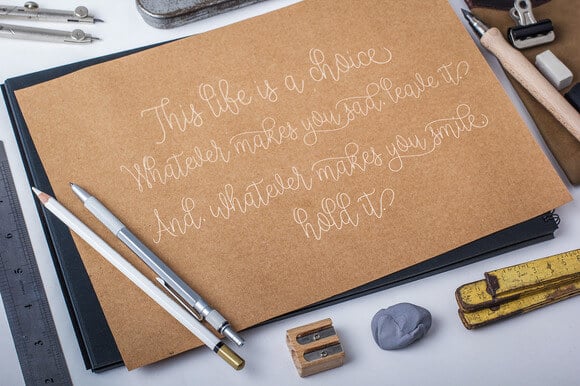 This life is a choice
Whatever makes you sad, leave it
And, whatever makes you smile
hold it